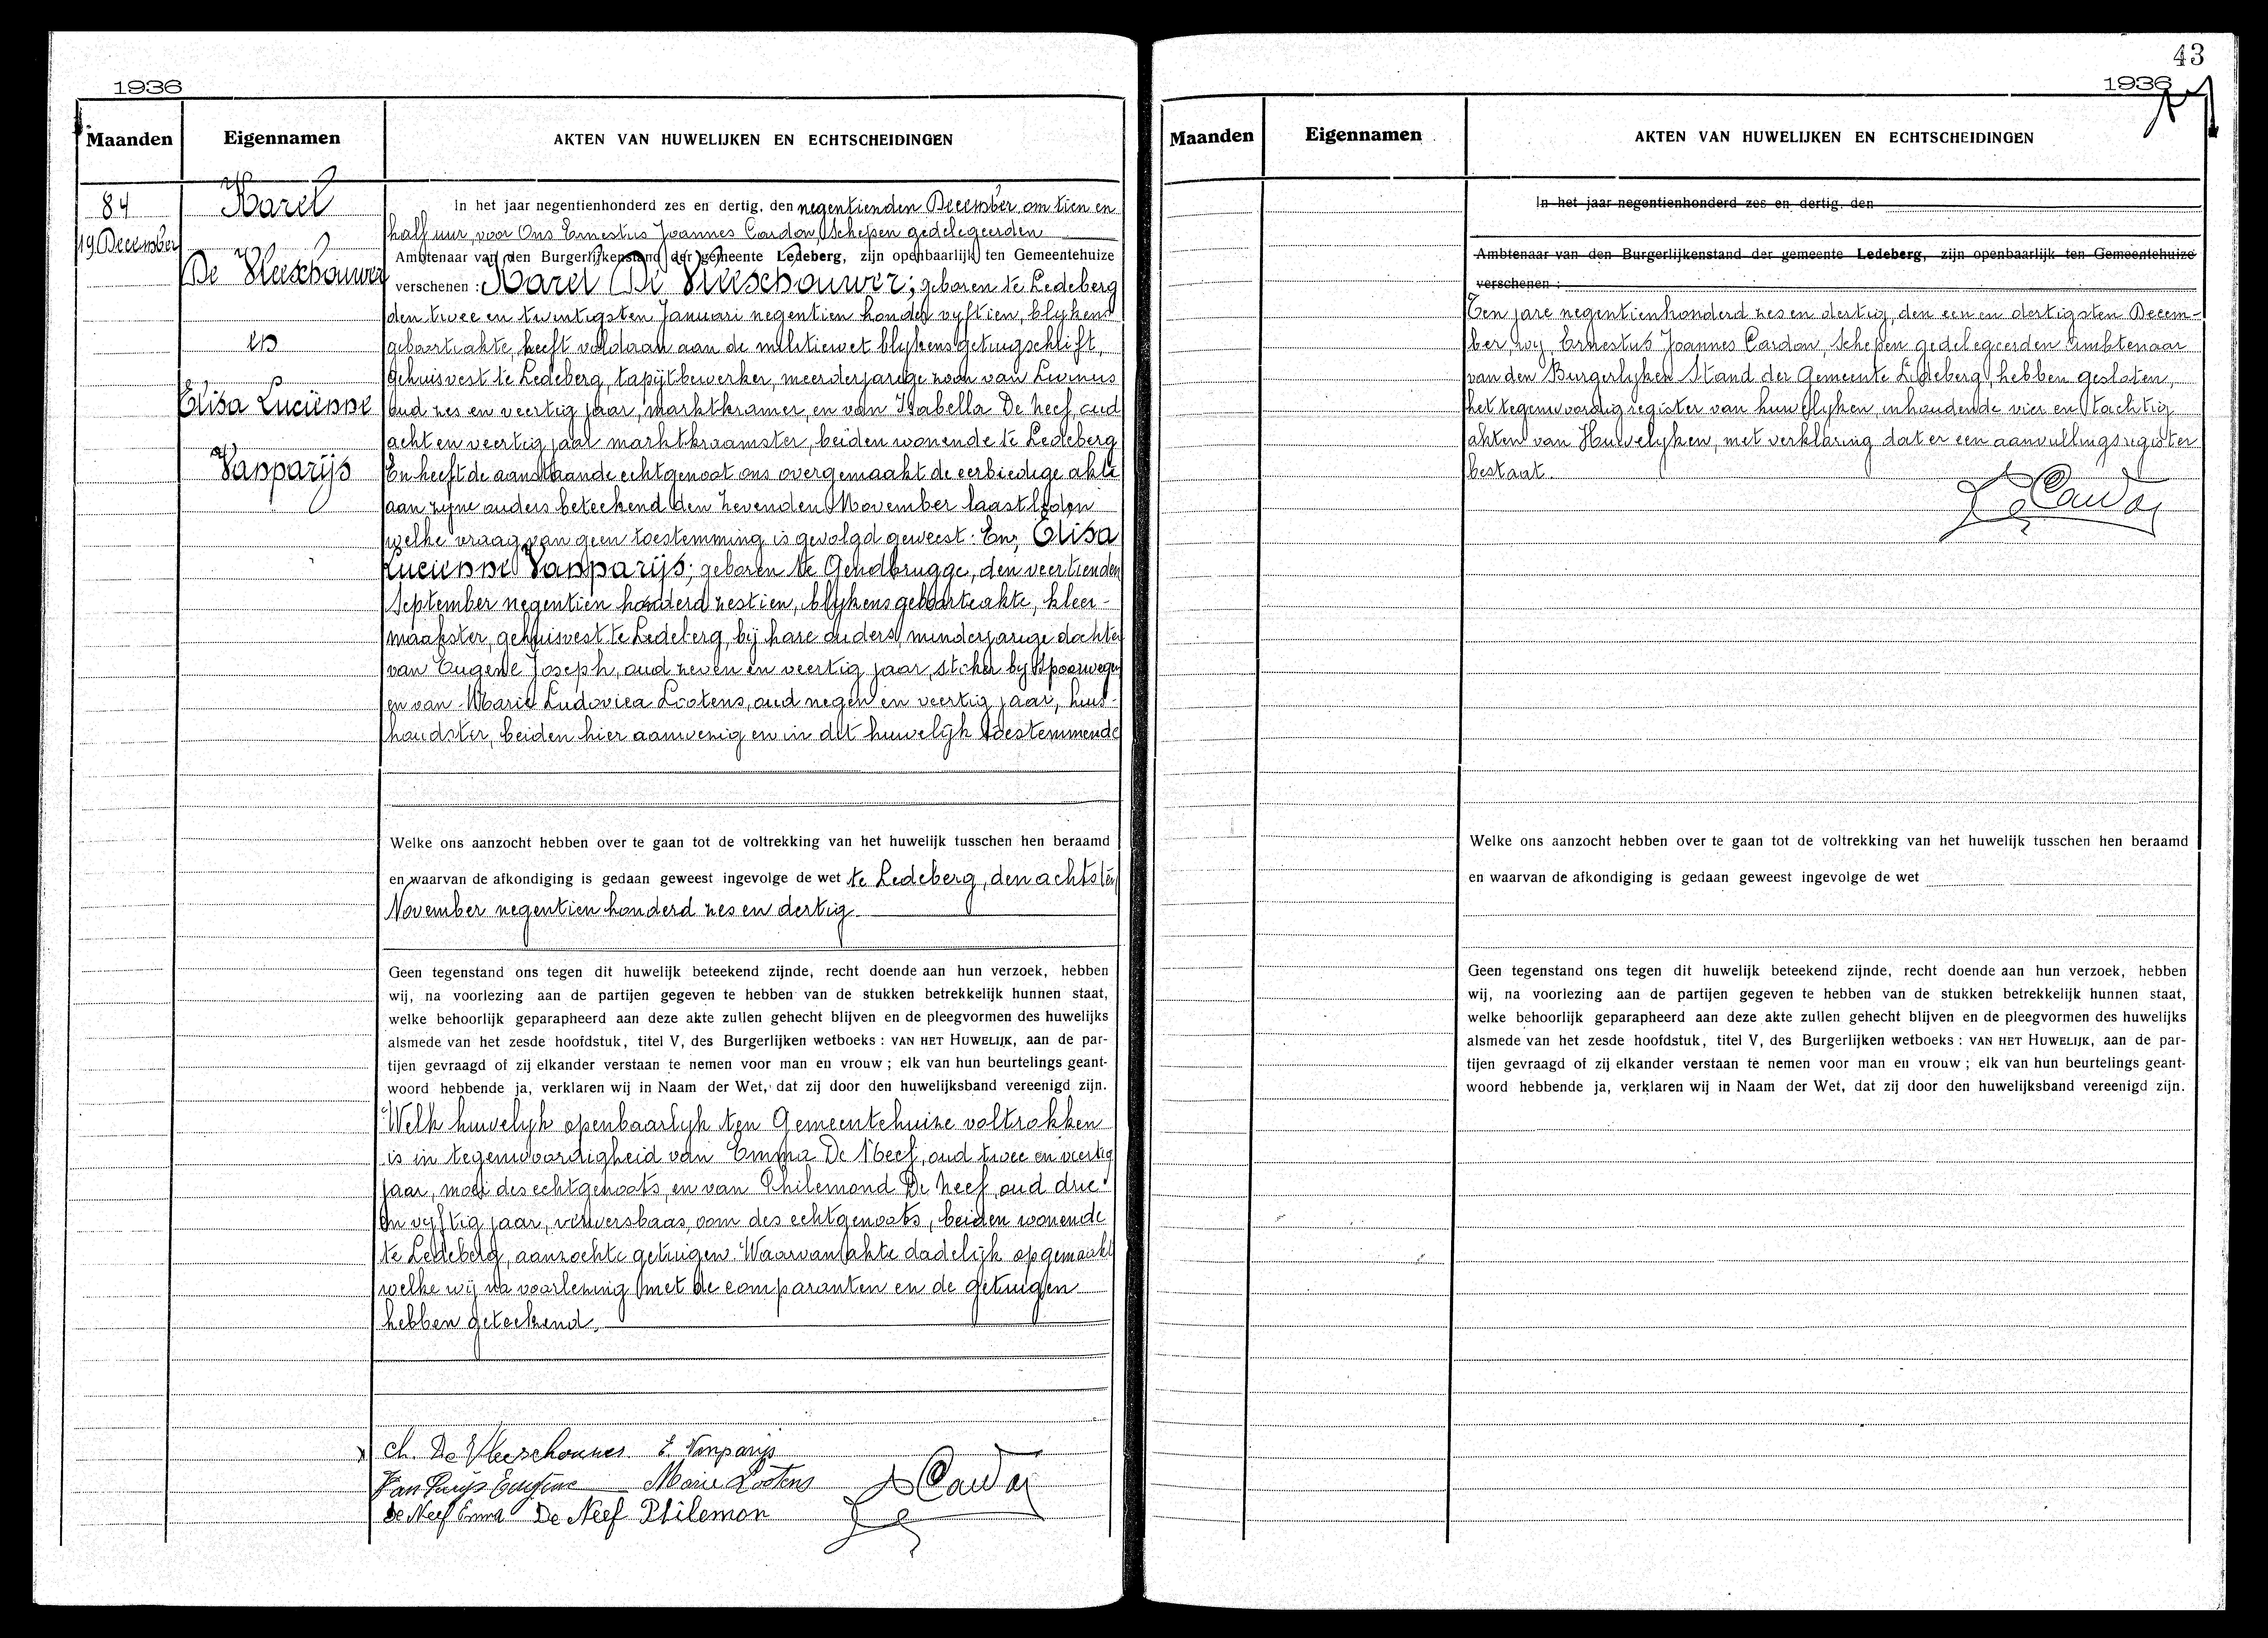 1936
Maanden
Eigennamen
AKTEN VAN HUWELIJKEN EN ECHTSCHEIDINGEN
84
19 December
Karel
De Vleeschouwer
en
Elisa Lucienne
Vanparijs
In het jaar negentienhonderd zes en dertig, den negentienden December om tien en
half uur, voor Ons Ernestus Joannes Cardon, Schepen gedelegeerden
Ambtenaar van den Burgerlijkenstand der gemeente Ledeberg, zijn openbaarlijk ten Gemeentehuize
verschenen : Karel De Vleeschouwer; geboren te Ledeberg
den twee en twintigsten Januari negentien honderd vyftien, blykens
geboorteakte, heeft voldaan aan de militiewet blykens getuigschrift,
gehuisvest te Ledeberg, tapijtbewerker, meerderjarige zoon van Livinus
oud zes en veertig jaar, marktkramer, en van Isabella De Neef, oud
acht en veertig jaar marktkraamster, beiden wonende te Ledeberg
En heeft de aanstaande echtgenoot ons overgemaakt de eerbiedige akte
aan zyne ouders beteekend den zevenden November laastleden
welke vraag van geen toestemming is gevolgd geweest. En, Elisa
Lucienne Vanparijs; geboren te Gendbrugge, den veertienden
September negentien honderd zestien, blykens geboorteakte, kleer-
maakster, gehuisvest te Ledeberg, bij hare ouders, minderjarige dochter
van Eugene Joseph, oud zeven en veertig jaar, stoker by Spoorwegen
en van Marie Ludovica Lootens, oud negen en veertig jaar, huis-
houdster, beiden hier aanwezig en in dit huwelijk toestemmende
Welke ons aanzocht hebben over te gaan tot de voltrekking van het huwelijk tusschen hen beraamd
en waarvan de afkondiging is gedaan geweest ingevolge de wet te Ledeberg, den achtsten
November negentien honderd zes en dertig
Geen tegenstand ons tegen dit huwelijk beteekend zijnde, recht doende aan hun verzoek, hebben
wij, na voorlezing aan de partijen gegeven te hebben van de stukken betrekkelijk hunnen staat,
welke behoorlijk geparapheerd aan deze akte zullen gehecht blijven en de pleegvormen des huwelijks
alsmede van het zesde hoofdstuk, titel V, des Burgerlijken wetboeks : VAN HET HUWELIJK, aan de par-
tijen gevraagd of zij elkander verstaan te nemen voor man en vrouw ; elk van hun beurtelings geant-
woord hebbende ja, verklaren wij in Naam der Wet, dat zij door den huwelijksband vereenigd zijn.
Welk huwelyk openbaarlyk ten Gemeentehuize voltrokken
is in tegenwoordigheid van Emma De Neef, oud twee en veertig
jaar, moei des echtgenoots, en van Philemond De Neef, oud drie
en vyftig jaar, ververs baas, oom des echtgenoots, beiden wonende
te Ledeberg, aanzochte getuigen. Waarvan akte dadelijk opgemaakt
welke wij na voorlezing met de comparanten en de getuigen
hebben geteekend.
Ch. De Vleeschouwer E. Vanparijs
Van Parijs Eugène Marie Lootens
De Neef Emma De Neef Philemon
Cardon
43
1936
Maanden
Eigennamen
AKTEN VAN HUWELIJKEN EN ECHTSCHEIDINGEN
In het jaar negentienhonderd zes en dertig, den
Ambtenaar van den Burgerlijkenstand der gemeente Ledeberg, zijn openbaarlijk ten Gemeentehuize
verschenen :
Ten jare negentienhonderd zes en dertig, den een en dertigsten Decem-
ber, wy, Ernestus Joannes Cardon, Schepen gedelegeerden Ambtenaar
van den Burgerlyken Stand der Gemeente Ledeberg, hebben gesloten,
het tegenwoordig register van huwelyken, inhoudende vier en tachtig
akten van Huwelyken, met verklaring dat er een aanvullingsregister
bestaat.
Cardon
Welke ons aanzocht hebben over te gaan tot de voltrekking van het huwelijk tusschen hen beraamd
en waarvan de afkondiging is gedaan geweest ingevolge de wet
Geen tegenstand ons tegen dit huwelijk beteekend zijnde, recht doende aan hun verzoek, hebben
wij, na voorlezing aan de partijen gegeven te hebben van de stukken betrekkelijk hunnen staat,
welke behoorlijk geparapheerd aan deze akte zullen gehecht blijven en de pleegvormen des huwelijks
alsmede van het zesde hoofdstuk, titel V, des Burgerlijken wetboeks : VAN HET HUWELIJK, aan de par-
tijen gevraagd of zij elkander verstaan te nemen voor man en vrouw ; elk van hun beurtelings geant-
woord hebbende ja, verklaren wij in Naam der Wet, dat zij door den huwelijksband vereenigd zijn.